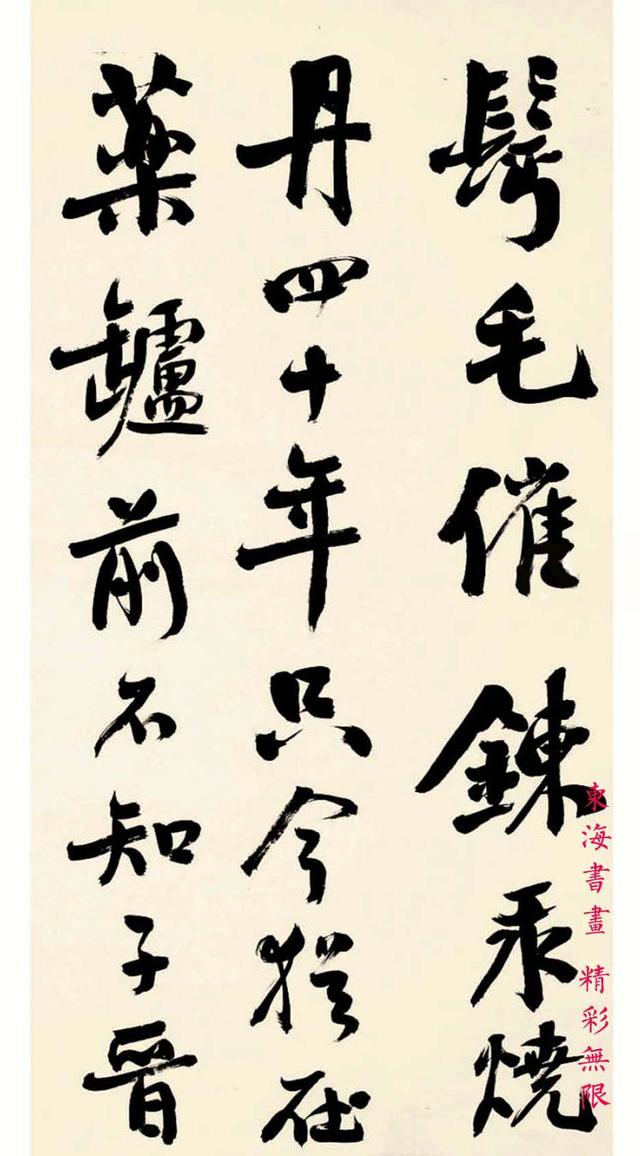 鬢毛催鍊汞燒
丹四十年只今猶在
藥罏前不知子晉
東海書畫 精彩無限